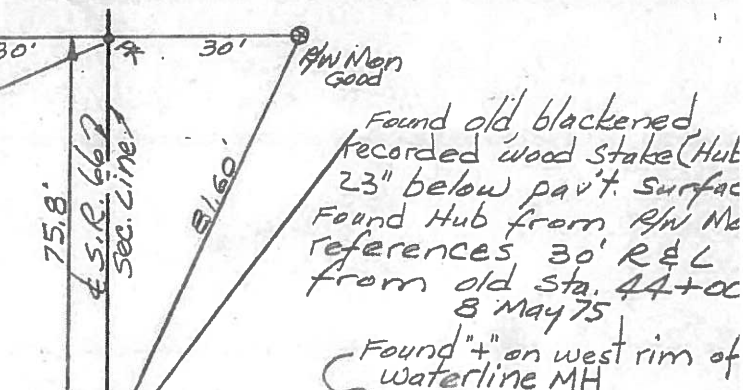 30'
30'
R/W Mon
Good
75.8'
℄ S.R. 667
Sec. Line
81.60'
Found old, blackened,
recorded wood stake (Hub
23" below pav't. Surfac
Found Hub from R/W Mo
references 30' R & L
from old Sta. 44+00
8 May 75
Found "+" on west rim of
waterline MH